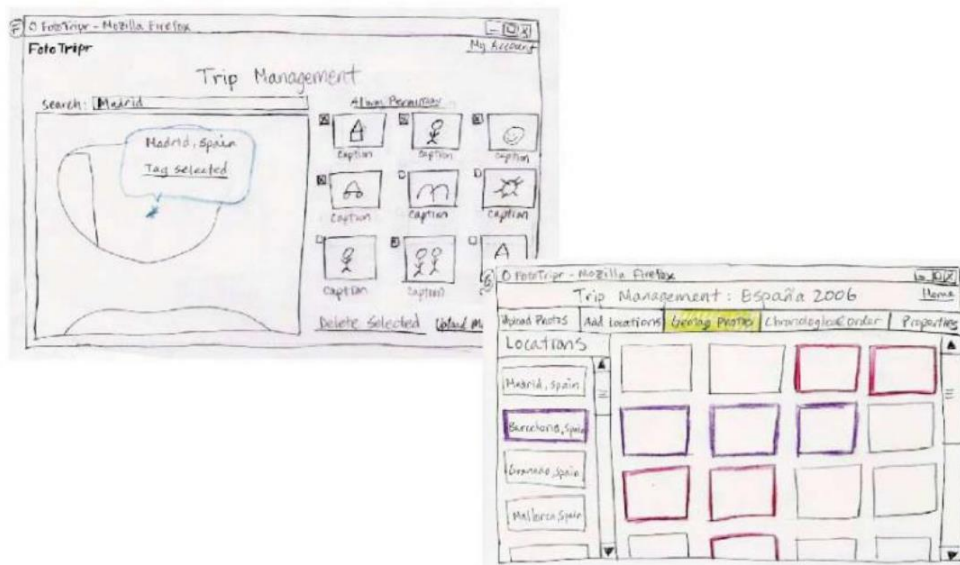 F
FotoTripr - Mozilla Firefox
FotoTripr
My Account
Trip Management
Search: Madrid
Album Permissions
Madrid, Spain
Tag selected
caption caption caption
caption caption caption
caption caption
Delete Selected Upload M
G
FotoTripr - Mozilla Firefox
Trip Management: España 2006
Home
Upload Photos Add Locations Geotag Photos Chronological order Properties
Locations
Madrid, Spain
Barcelona, Spain
Granada, Spain
Mallorca, Spain